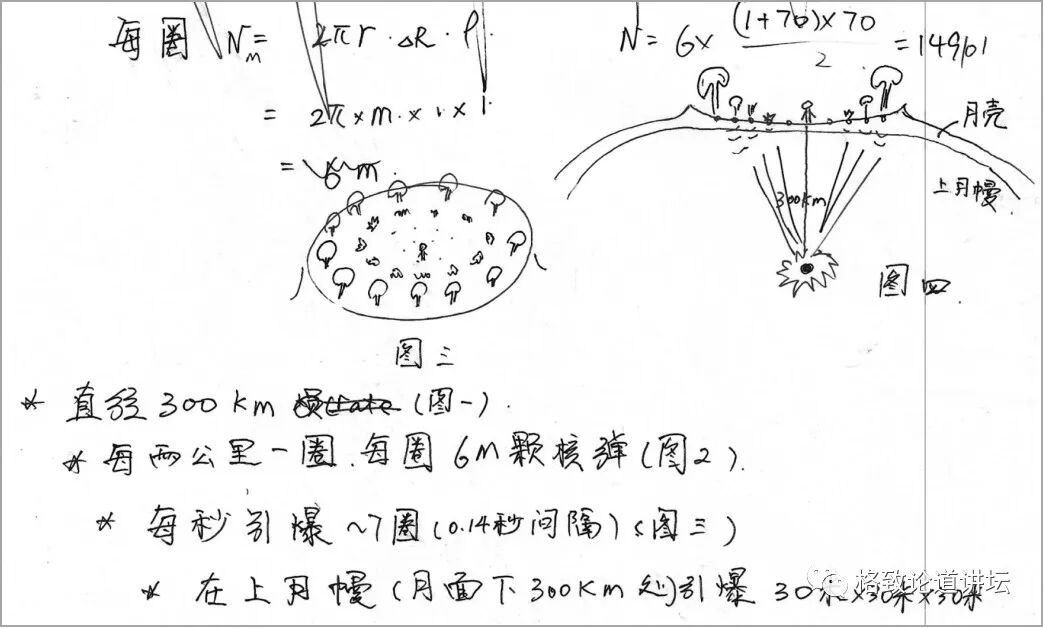 每圈 Nm = 2πr · ΔR · ρ.
= 2π × m × 1 × 1.
= ~6m.
N = 6 × (1+70)×70 / 2 = 14910
月壳
上月幔
300km
图三
图四.
* 直径300km (图一).
* 每两公里一圈.每圈6m颗核弹(图2).
* 每秒引爆~7圈(0.14秒间隔)(图三)
* 在上月幔(月面下300km处)引爆 30米×30米×30米
格致论道讲坛